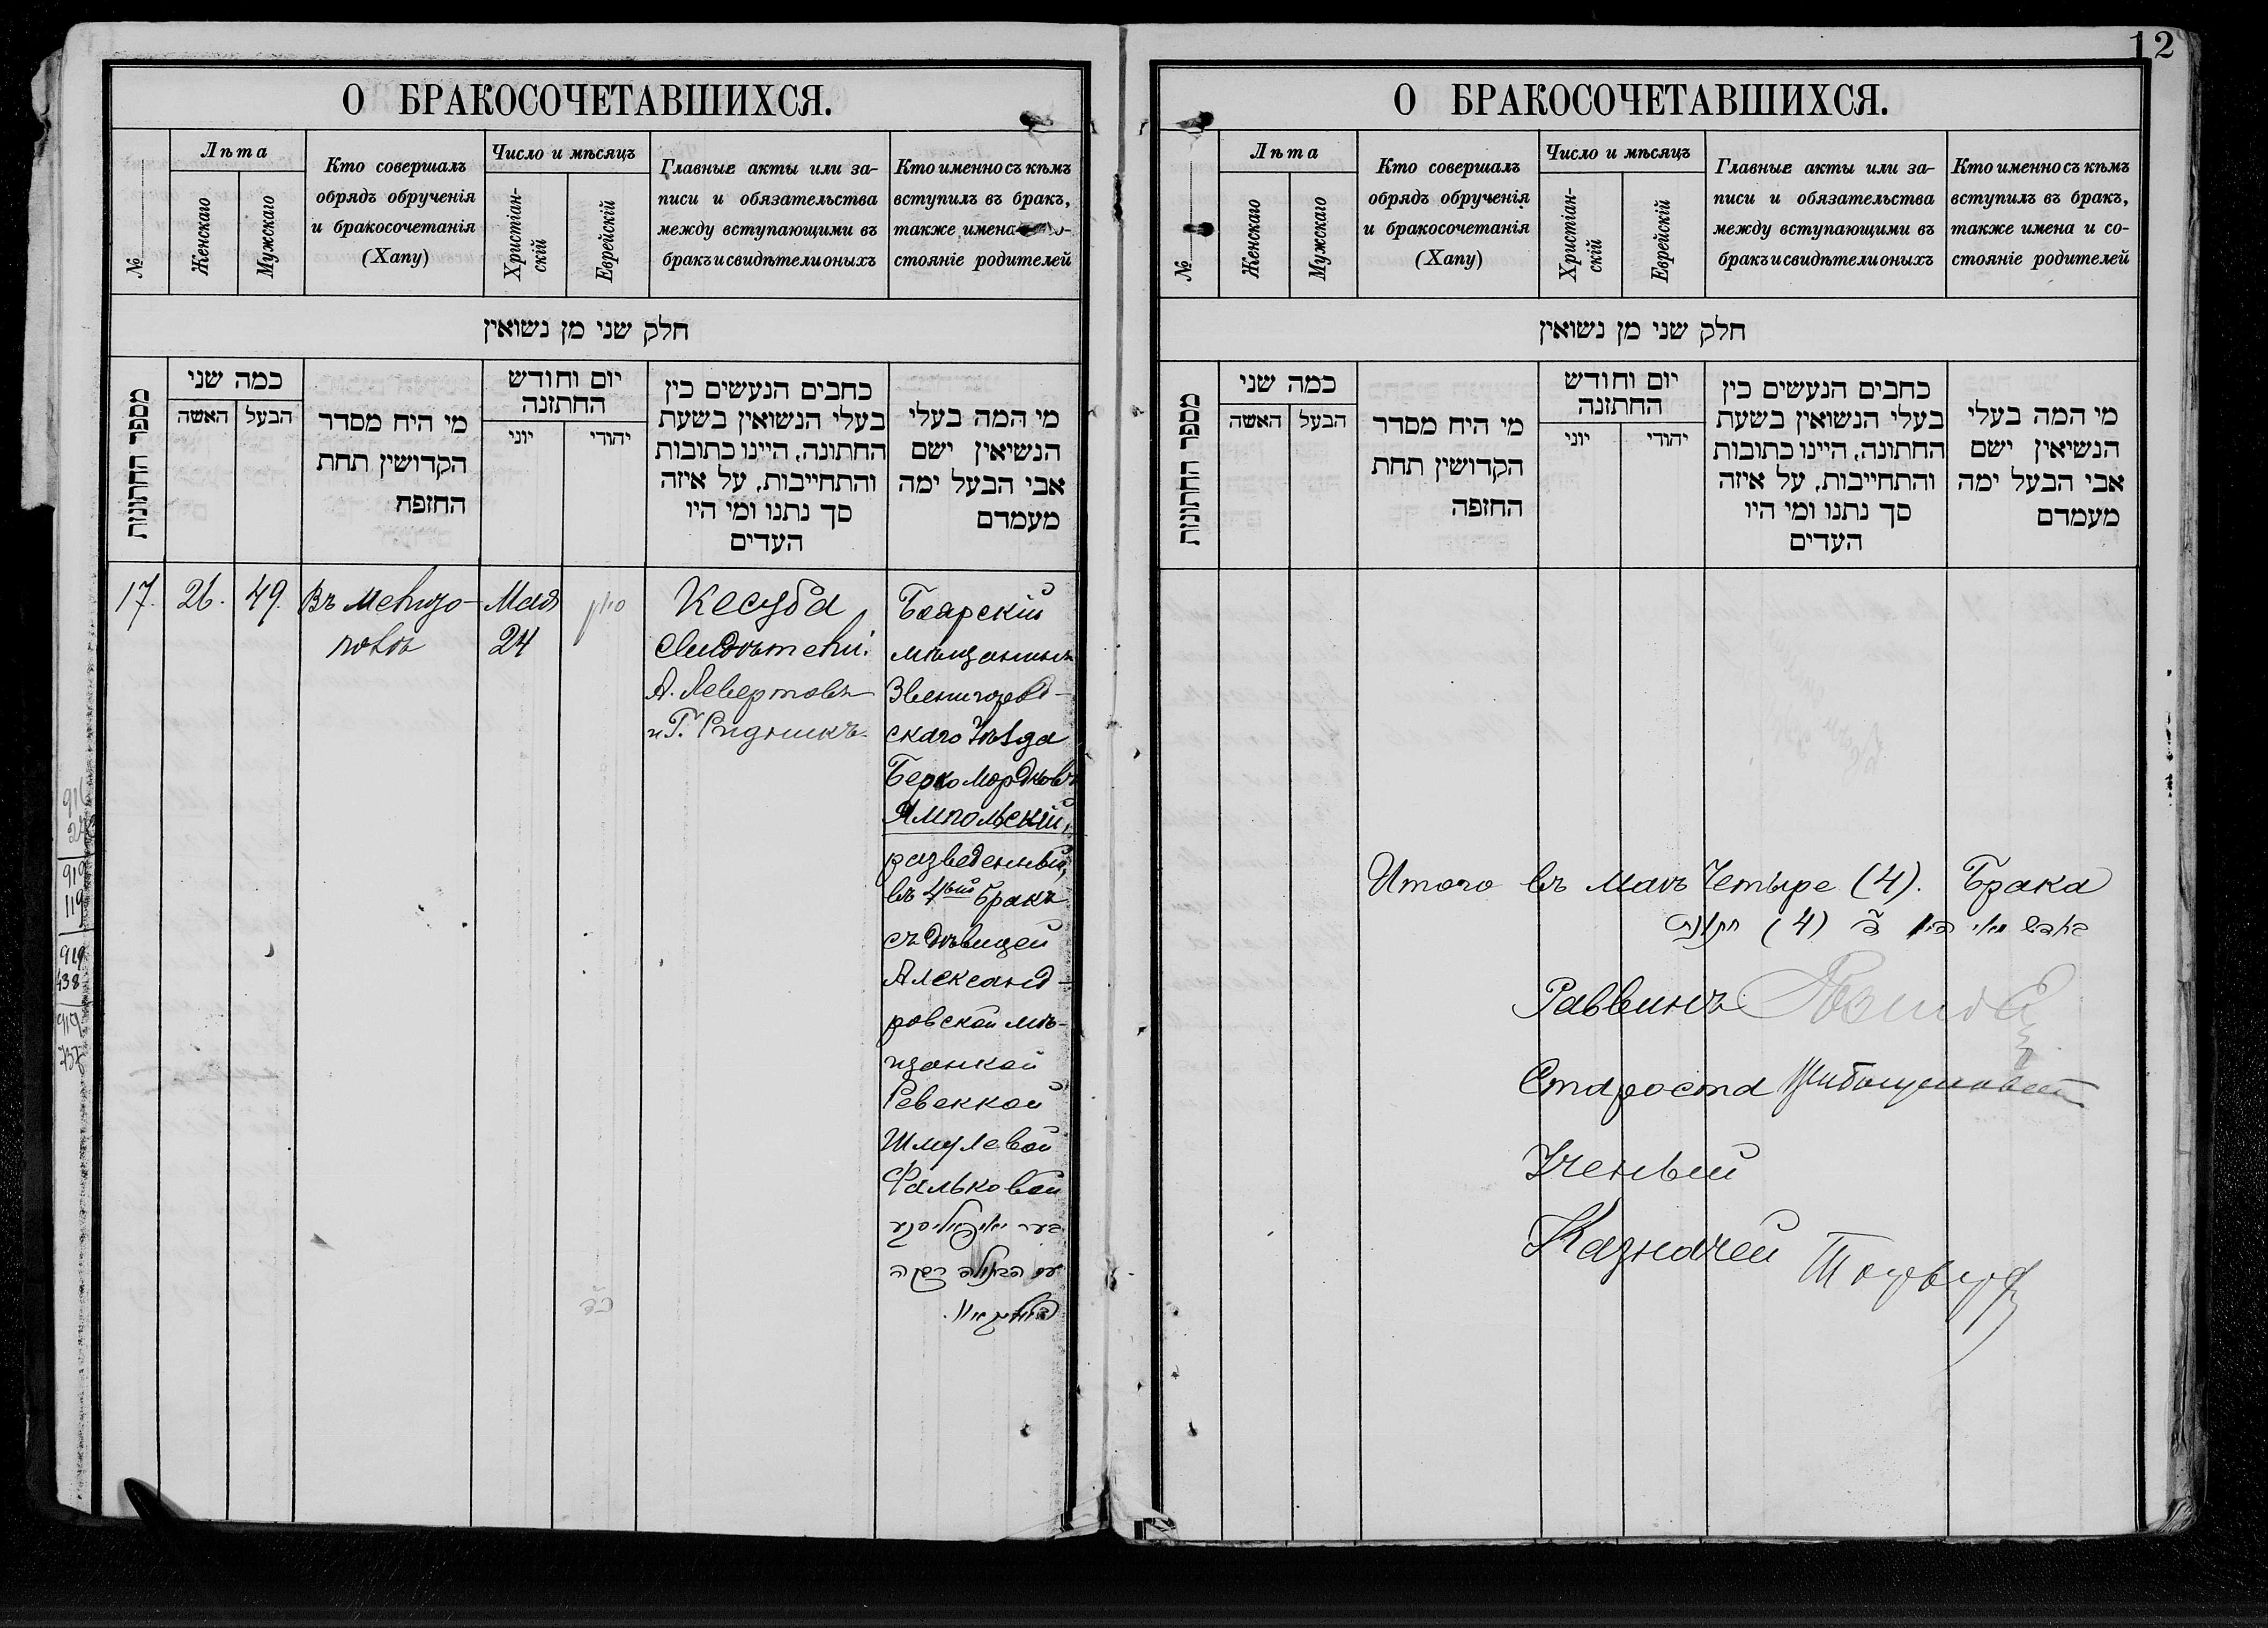 12
О БРАКОСОЧЕТАВШИХСЯ.
№
Лѣта
Женскаго
Мужскаго
Кто совершалъ
обрядъ обрученія
и бракосочетанія
(Хапу)
Число и мѣсяцъ
Христіан-
скій
Еврейскій
Главные акты или за-
писи и обязательства
между вступающими въ
бракъ и свидѣтели оныхъ
Кто именно съ кѣмъ
вступилъ въ бракъ,
также имена
стояніе родителей
חלק שני מן נשואין
מספר החתונות
כמה שני
האשה
הבעל
מי היח מסדר
הקדושין תחת
החופה
יום וחודש
החתונה
יוני
יהודי
כחבים הנעשים כין
בעלי הנשואין בשעת
החתונה, היינו כתובות
והתחייבות, על איזה
סך נתנו ומי היו
העדים
מי המה בעלי
הנשיאין ישם
אבי הבעל ימה
מעמדם
17.
26.
49.
Въ
Мая
24
סיון
כ״ב
Кесуба
Свидѣтели:
А. Левертовъ
и Г.
Боярскій
мѣщанинъ
Звенигород-
скаго Уѣзда
Берко Мордковъ
Ямпольскій,
разведенный,
въ бракъ
съ дѣвицей
Александ-
ровской мѣ-
щанкой
Ревеккой
Шмулевой
Фальковой
בער יאמפאליסקי
עם הבתולה רבקה
919
119
919
438
919
737
О БРАКОСОЧЕТАВШИХСЯ.
№
Лѣта
Женскаго
Мужскаго
Кто совершалъ
обрядъ обрученія
и бракосочетанія
(Хапу)
Число и мѣсяцъ
Христіан-
скій
Еврейскій
Главные акты или за-
писи и обязательства
между вступающими въ
бракъ и свидѣтели оныхъ
Кто именно съ кѣмъ
вступилъ въ бракъ,
также имена и со-
стояніе родителей
חלק שני מן נשואין
מספר החתונות
כמה שני
האשה
הבעל
מי היח מסדר
הקדושין תחת
החופה
יום וחודש
החתונה
יוני
יהודי
כחבים הנעשים כין
בעלי הנשואין בשעת
החתונה, היינו כתובות
והתחייבות, על איזה
סך נתנו ומי היו
העדים
מי המה בעלי
הנשיאין ישם
אבי הבעל ימה
מעמדם
Итого въ Маѣ Четыре (4). Брака
בחדש מאי היו (4) חתונות
Раввинъ
Староста
Ученый
Казначей